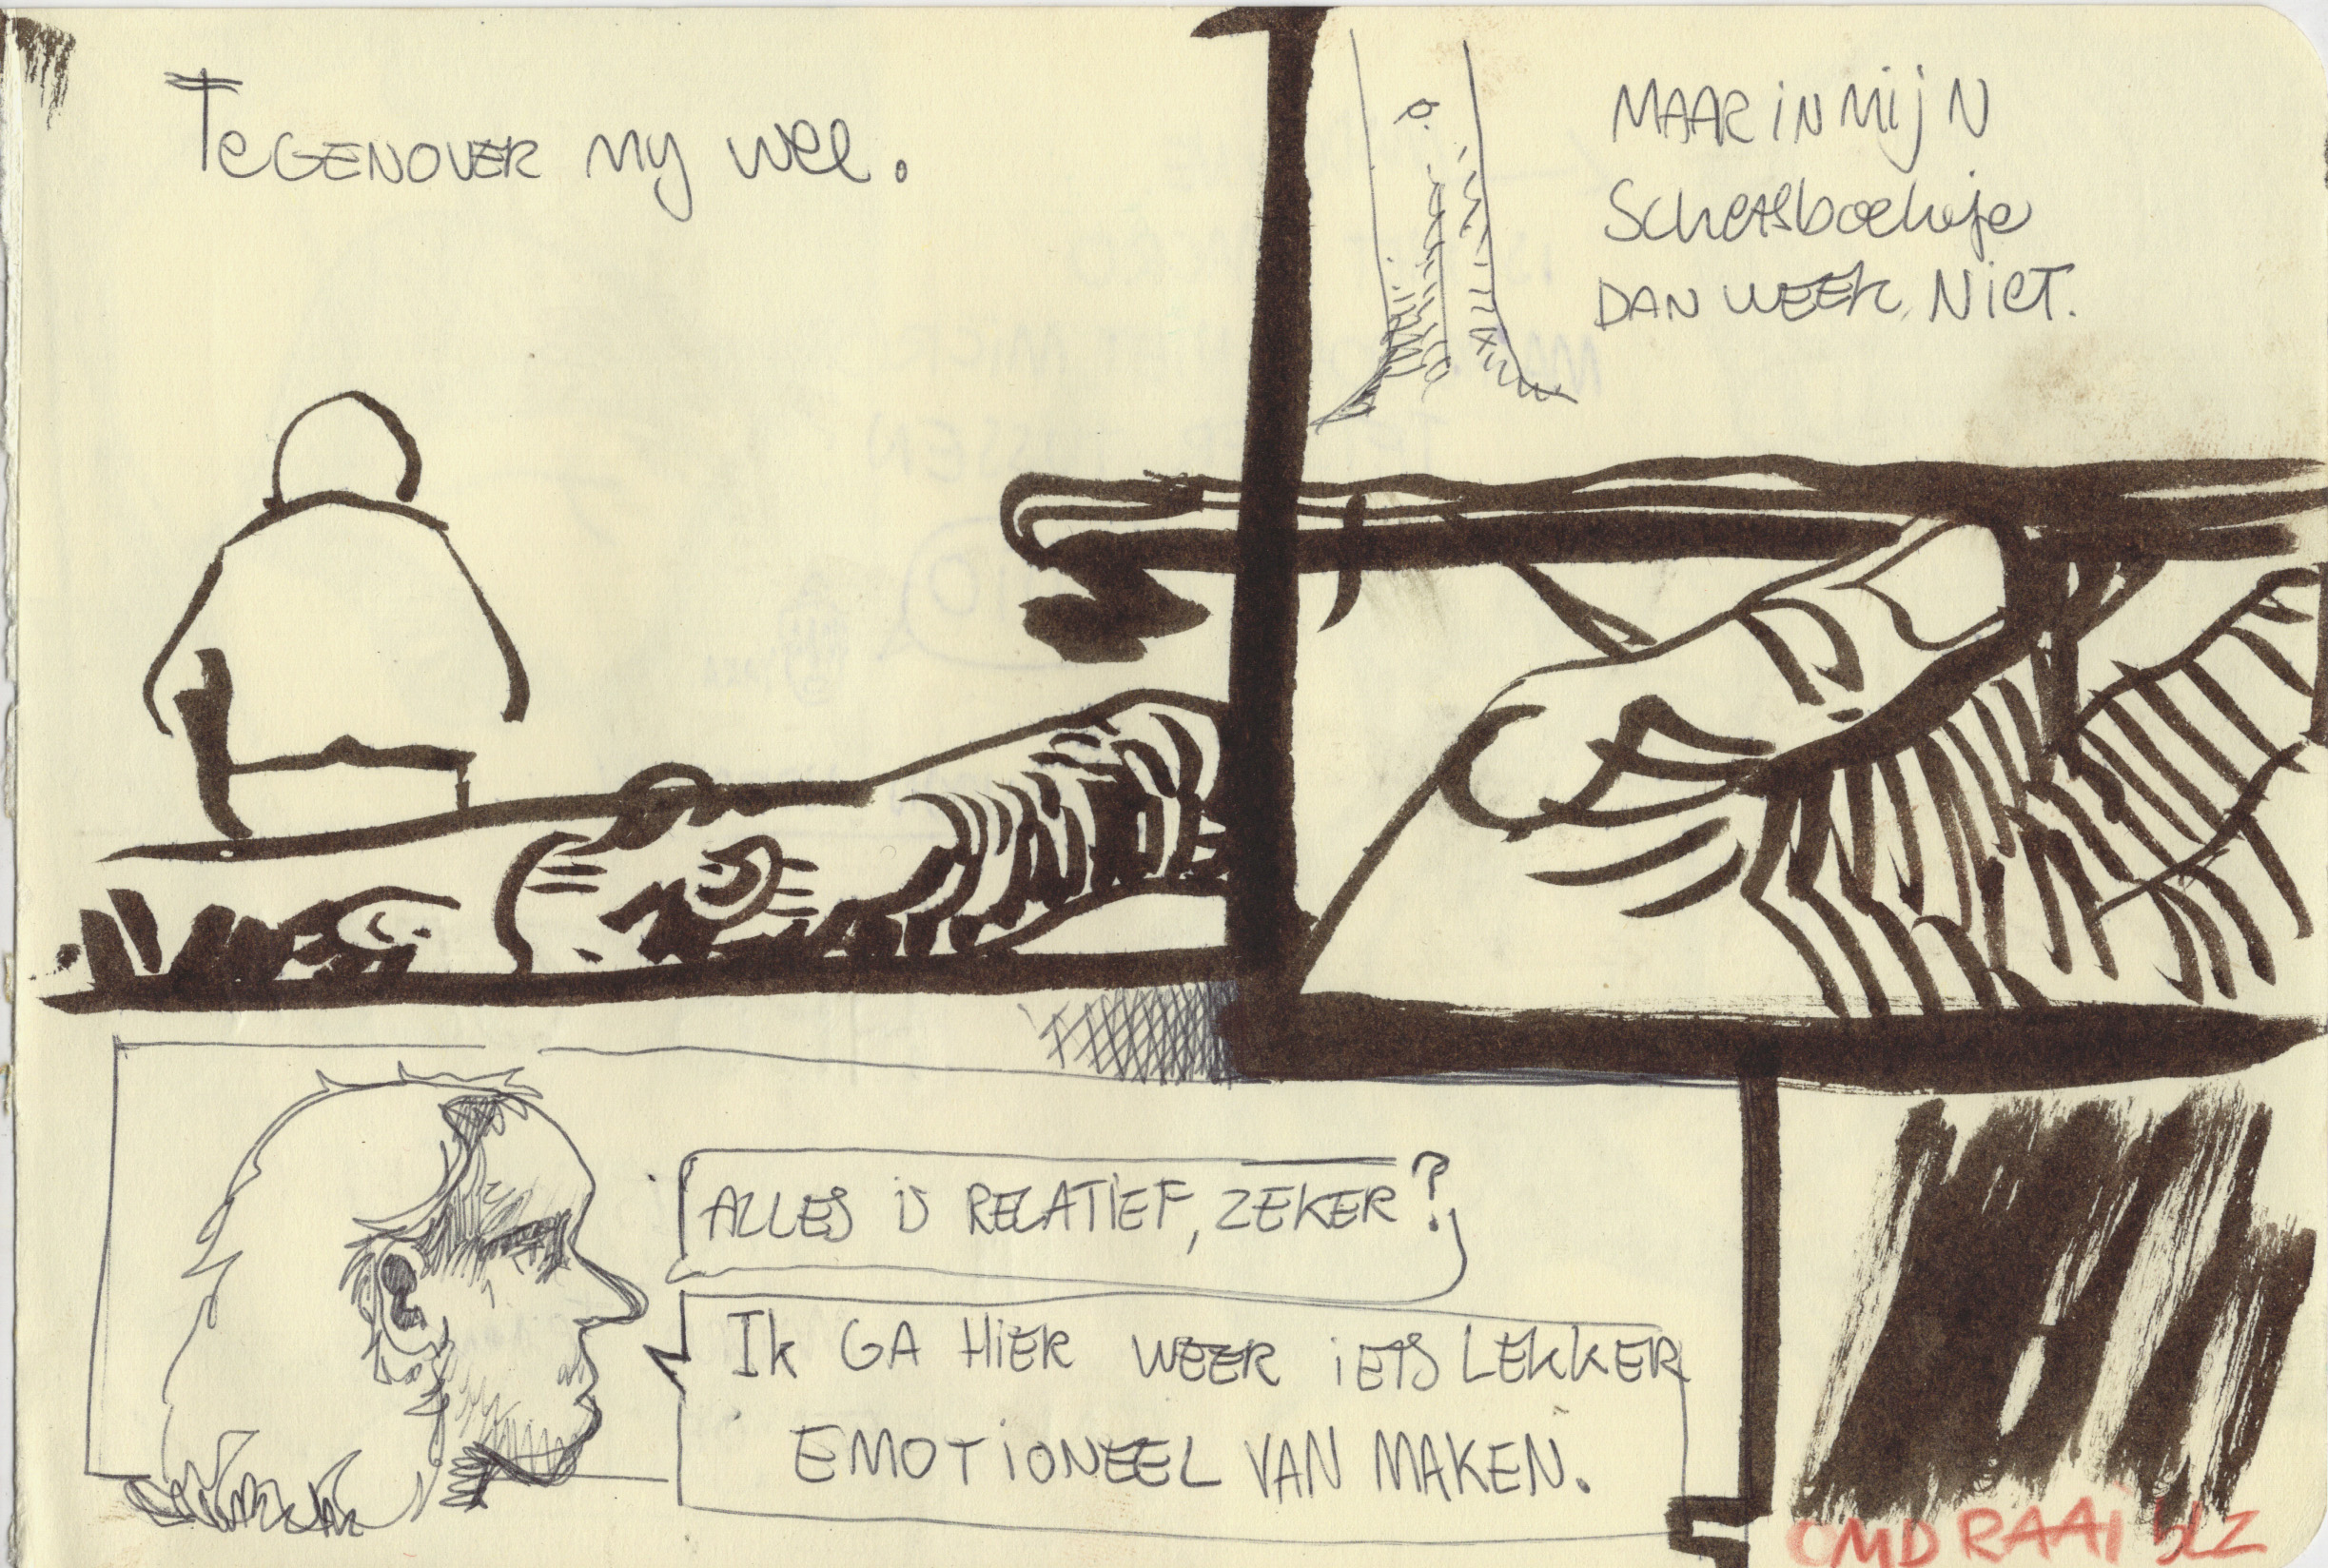 TEGENOVER my wel.
MAAR IN MIJN
SCHETSBOEKJE
DAN WEER NIET.
ALLES IS RELATIEF, ZEKER?
Ik GA HIER WEER IETS LEKKER
EMOTIONEEL VAN MAKEN.
OMDRAAI blz